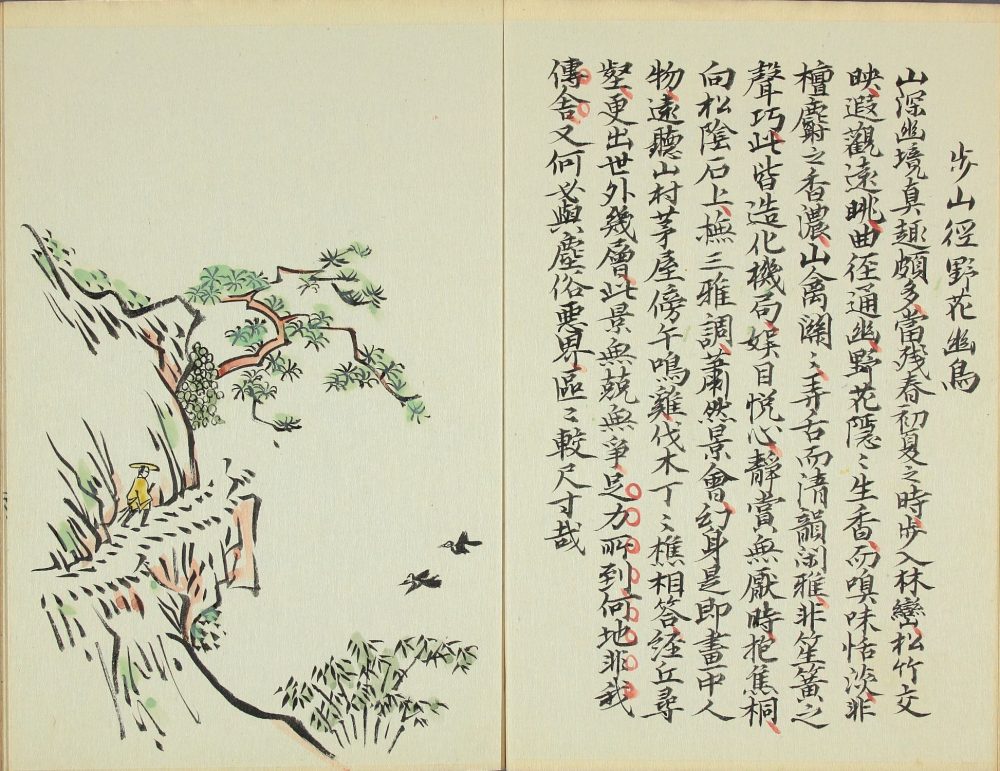 步山徑野花幽鳥
山深幽境真趣頗多當殘春初夏之時步入林巒松竹交
映遐觀遠眺曲徑通幽野花隱〻生香而嗅味恬淡非
檀麝之香濃山禽關〻弄舌而清韻閑雅非笙簧之
聲巧此皆造化機局娛目悅心靜賞無厭時抱焦桐
向松陰石上撫三雅調蕭然景會幻身是即畫中人
物遠聽山村茅屋傍午鳴雞伐木丁〻樵相答經丘尋
壑更出世外幾層此景無競無爭足力所到何地非我
傳舍又何必與塵俗惡界區〻較尺寸哉